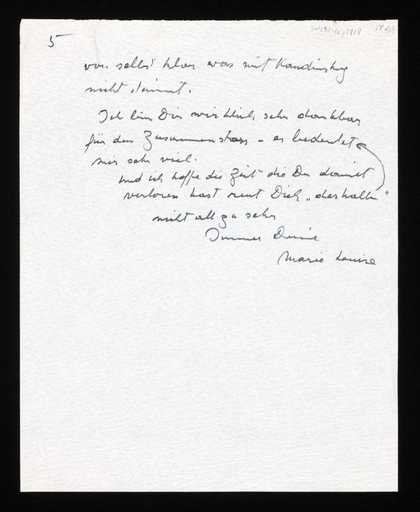 5
von selbst klar was mit Kandinsky
nicht stimmt.
Ich bin Dir wirklich sehr dankbar
für den Zusammenstoss – es bedeutet
mir sehr viel.
und ich hoffe die Zeit die Du damit
verloren hast reut Dich „deshalb"
nicht allzu sehr
Immer Deine
Marie Louise